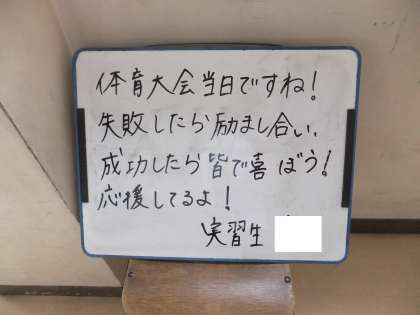 体育大会当日ですね!
失敗したら励まし合い、
成功したら皆で喜ぼう!
応援してるよ!
実習生